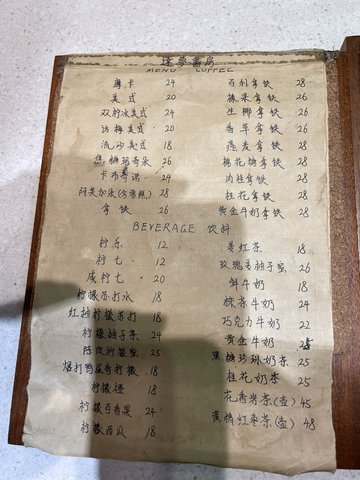 逢夢書房
MENU COFFEE
摩卡 24
美式 20
双柠冰美式 24
话梅美式 20
流沙美式 18
焦糖玛奇朵 26
卡布奇诺 24
阿芙加朵(含雪糕) 28
拿铁 26
百利拿铁 28
榛果拿铁 26
生椰拿铁 28
香草拿铁 26
燕麦拿铁 28
棉花糖拿铁 28
肉桂拿铁 28
桂花拿铁 28
黄金牛奶拿铁 28
BEVERAGE 饮料
柠乐 12
柠七 12
咸柠七 20
柠檬苏打水 18
红柚柠檬苏打 18
柠檬柚子茶 24
陈皮柠檬蜜 25
爆打鸭屎香柠檬 18
柠檬橙 18
柠檬百香果 24
柠檬西瓜 18
姜红茶 18
玫瑰姜柚子蜜 26
鲜牛奶 18
抹茶牛奶 24
巧克力牛奶 22
黄金牛奶
黑糖珍珠奶茶 25
桂花奶茶 25
花香果茶(壶) 45
黄精红枣茶(壶) 48